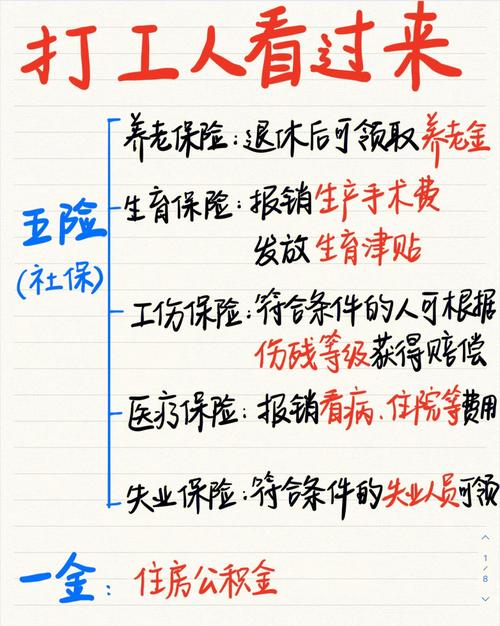 打工人看过来
养老保险:退休后可领取养老金
五险
(社保)
生育保险:报销生产手术费
发放生育津贴
工伤保险:符合条件的人可根据
伤残等级获得赔偿
医疗保险:报销看病、住院等费用
失业保险:符合条件的失业人员可领
一金:住房公积金
1/8